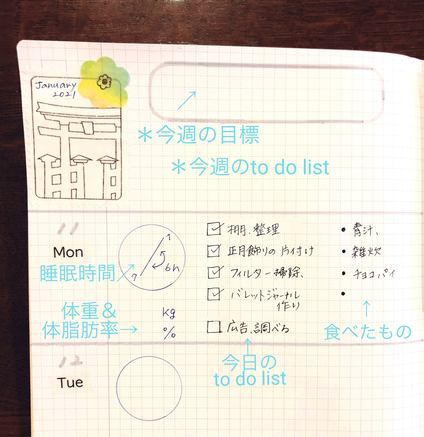 January
2021
＊今週の目標
＊今週のto do list
11
Mon
睡眠時間
1
7
6h
体重＆
体脂肪率→
kg
%
棚、整理
正月飾りの片付け
フィルター掃除、
バレットジャーナル
作り
広告、調べる
今日の
to do list
・青汁、
・雑炊
・チョコパイ
・
食べたもの
12
Tue